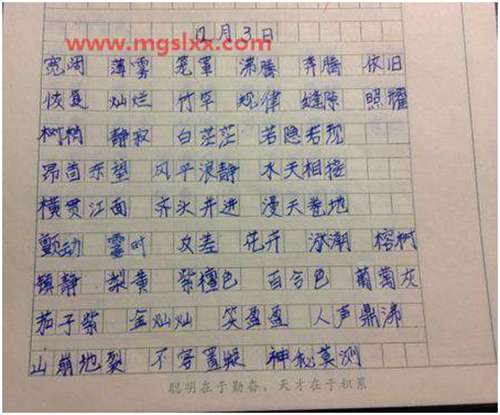 www.mgslxx.com
12月3日
宽阔 薄雾 笼罩 沸腾 奔腾 依旧
恢复 灿烂 竹竿 规律 缝隙 照耀
静寂 白茫茫 若隐若现
昂首东望 风平浪静 水天相接
横贯江面 齐头并进 漫天卷地
颤动 霎时 花卉 涨潮 榕树
镇静 梨黄 紫檀色 百合色 葡萄灰
茄子紫 金灿灿 笑盈盈 人声鼎沸
山崩地裂 不容置疑 神秘莫测
聪明在于勤奋、天才在于积累